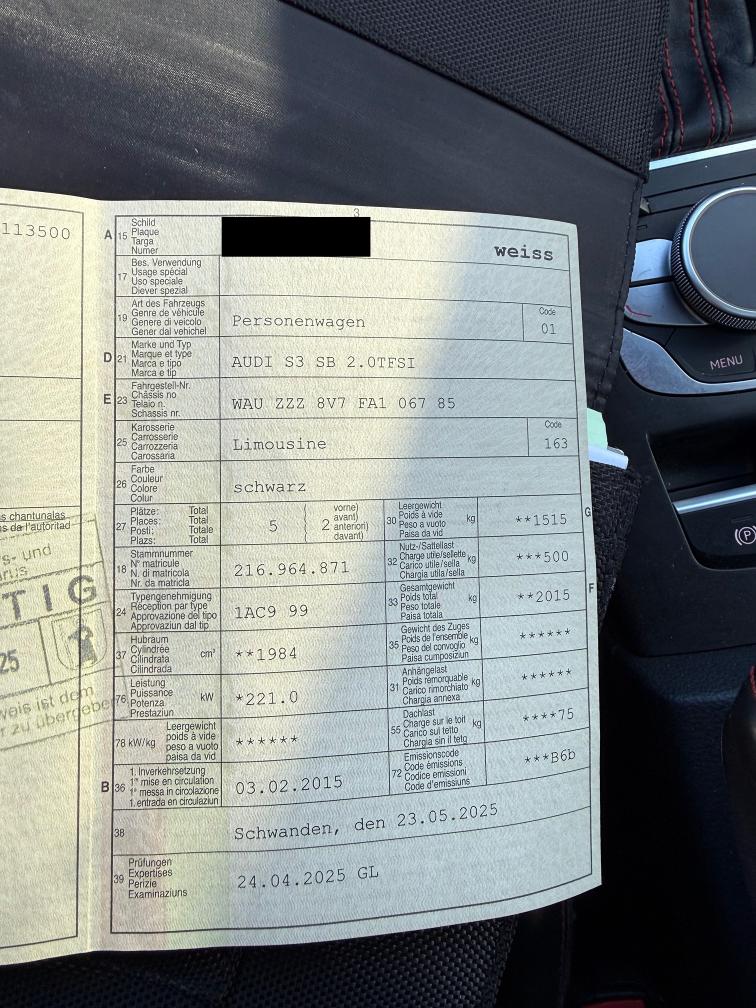 113500
3
A 15 Schild
Plaque
Targa
Numer
weiss
17 Bes. Verwendung
Usage spécial
Uso speciale
Diever spezial
19 Art des Fahrzeugs
Genre de véhicule
Genere di veicolo
Gener dal vehichel
Personenwagen
Code
01
D 21 Marke und Typ
Marque et type
Marca e tipo
Marca e tip
AUDI S3 SB 2.0TFSI
E 23 Fahrgestell-Nr.
Châssis no
Telaio n.
Schassis nr.
WAU ZZZ 8V7 FA1 067 85
25 Karosserie
Carrosserie
Carrozzeria
Carossaria
Limousine
Code
163
26 Farbe
Couleur
Colore
Colur
schwarz
27 Plätze: Total
Places: Total
Posti: Totale
Plazs: Total
5
2
vorne)
avant)
anteriori)
davant)
30 Leergewicht
Poids à vide kg
Peso a vuoto
Paisa da vid
**1515
G
18 Stammnummer
N° matricule
N. di matricola
Nr. da matricla
216.964.871
32 Nutz-/Sattellast
Charge utile/sellette kg
Carico utile/sella
Chargia utila/sella
***500
24 Typengenehmigung
Réception par type
Approvazione del tipo
Approvaziun dal tip
1AC9 99
33 Gesamtgewicht
Poids total kg
Peso totale
Paisa totala
**2015
F
37 Hubraum
Cylindrée cm³
Cilindrata
Cilindrada
**1984
35 Gewicht des Zuges
Poids de l'ensemble kg
Peso del convoglio
Paisa cumposiziun
******
76 Leistung
Puissance kW
Potenza
Prestaziun
*221.0
31 Anhängelast
Poids remorquable kg
Carico rimorchiato
Chargia annexa
******
78 kW/kg Leergewicht
poids à vide
peso a vuoto
paisa da vid
******
55 Dachlast
Charge sur le toit kg
Carico sul tetto
Chargia sin il tetg
****75
B 36 1. Inverkehrsetzung
1re mise en circulation
1a messa in circolazione
1. entrada en circulaziun
03.02.2015
72 Emissionscode
Code émissions
Codice emissioni
Code d'emissiuns
***B6b
38
Schwanden, den 23.05.2025
39 Prüfungen
Expertises
Perizie
Examinaziuns
24.04.2025 GL
s chantunalas
s da l'autoritad
s- und
TIG
25
weis ist dem
r zu übergeben
MENU
(P)